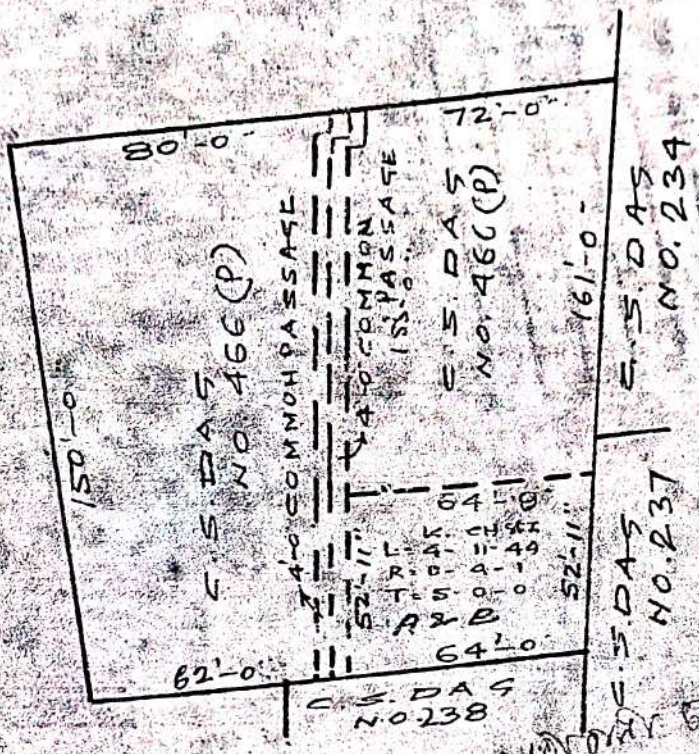 80'-0"
72'-0"
150'-0"
C.S. DAG
NO. 466 (P)
4'-0 COMMON PASSAGE
4'-0 COMMON
PASSAGE
C.S. DAG
NO. 466 (P)
161'-0"
C.S. DAG
NO. 234
64'-0"
K. CH
L=4-11-44
R=0-4-1
T=5-0-0
A & B
52'-11"
52'-11"
64'-0"
62'-0"
C.S. DAG
NO. 238
C.S. DAG
NO. 237